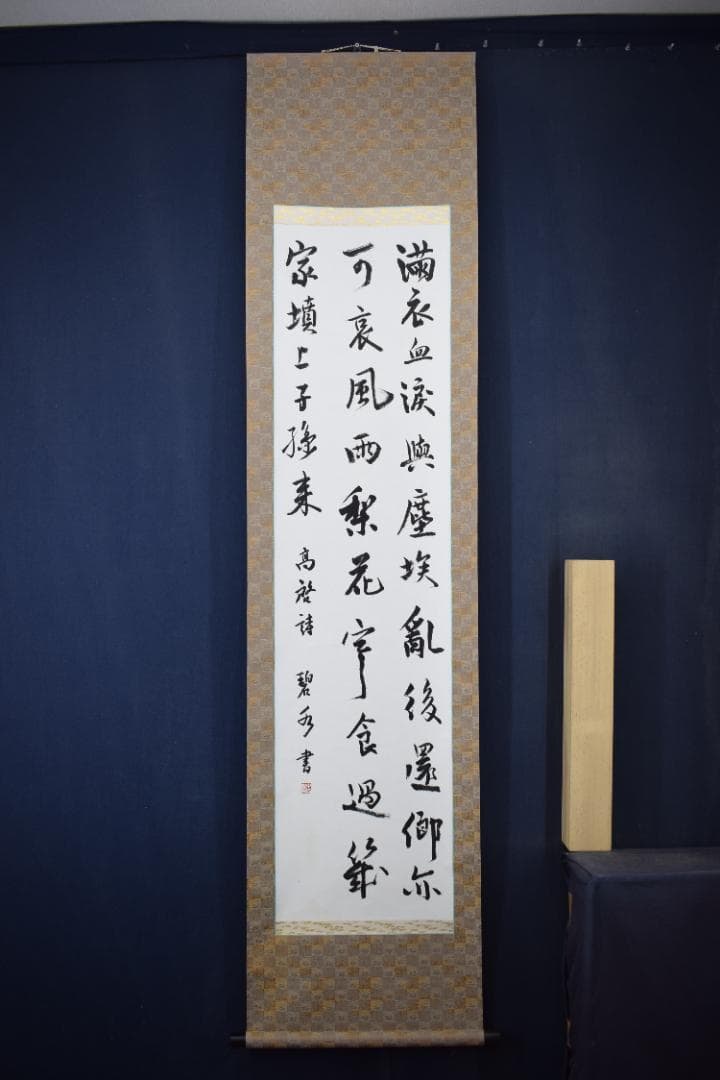 滿衣血淚與塵埃亂後還鄉亦
可哀風雨梨花寒食過幾
家墳上子孫来 高啓詩 碧水書